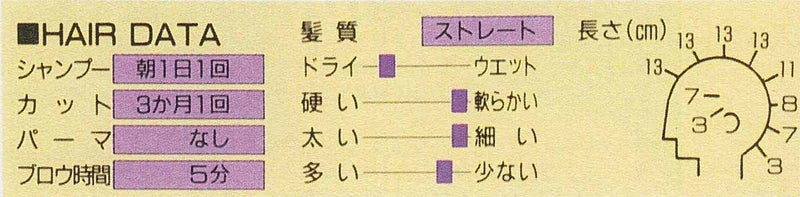 ■HAIR DATA
シャンプー 朝1日1回
カット 3か月1回
パーマ なし
ブロウ時間 5分
髪質 ストレート
ドライ ウエット
硬い 軟らかい
太い 細い
多い 少ない
長さ(cm)
13 13 13 13
11
8
7
3
7
3